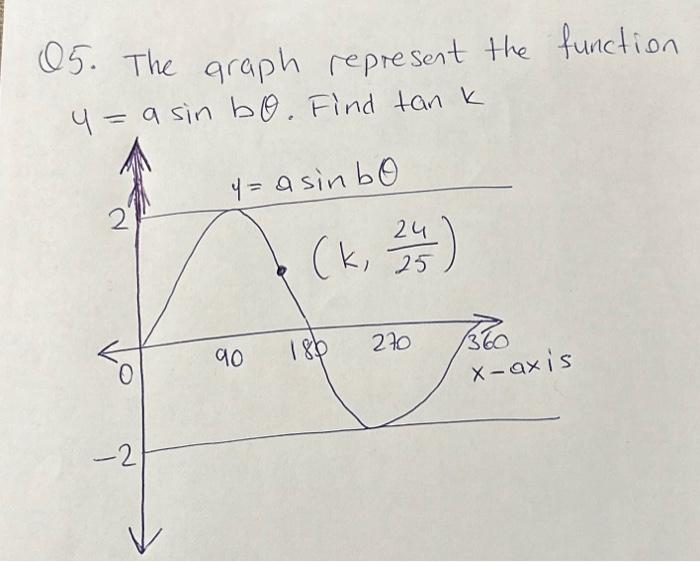 Q5. The graph represent the function
y = a sin bθ. Find tan k
y = a sin bθ
2
(k, 24/25)
0
90
180
270
360
x-axis
-2